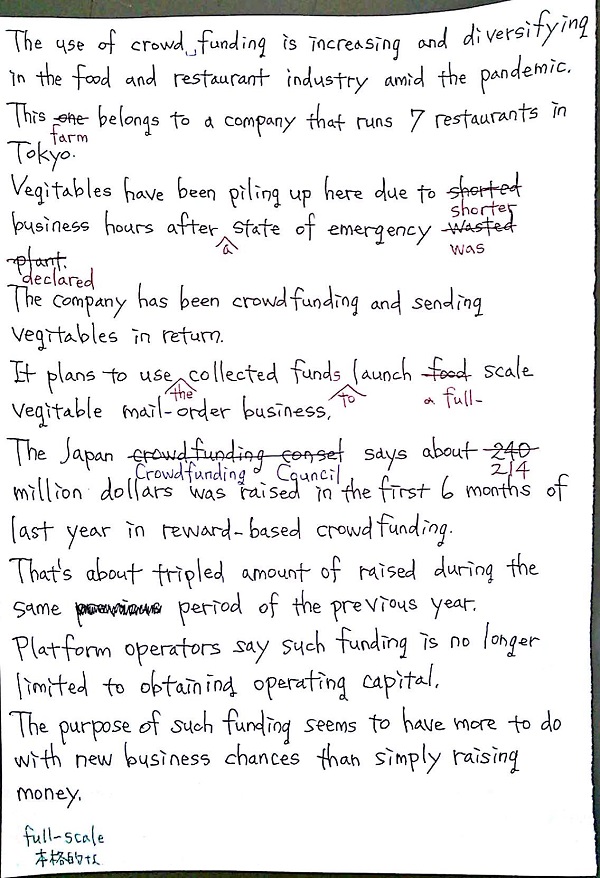 The use of crowd funding is increasing and diversifying
in the food and restaurant industry amid the pandemic.
This one belongs to a company that runs 7 restaurants in
farm
Tokyo.
Vegitables have been piling up here due to shorted
shorter
business hours after state of emergency wasted
a was
plant.
declared
The company has been crowdfunding and sending
vegitables in return.
It plans to use collected funds launch food scale
the to a full-
vegitable mail-order business.
The Japan crowdfunding consel says about 240
Crowdfunding Council 214
million dollars was raised in the first 6 months of
last year in reward-based crowdfunding.
That's about tripled amount of raised during the
same period of the previous year.
Platform operators say such funding is no longer
limited to obtaining operating capital.
The purpose of such funding seems to have more to do
with new business chances than simply raising
money.
full-scale
本格的な